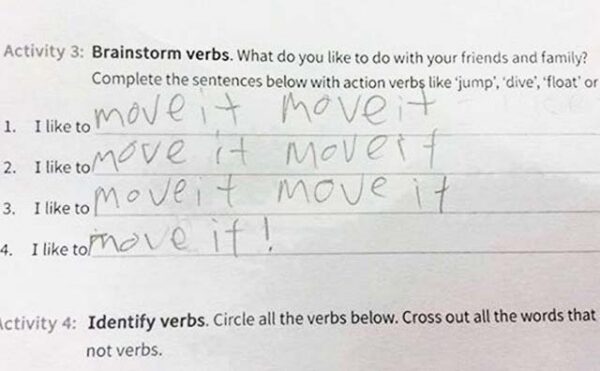 Activity 3: Brainstorm verbs. What do you like to do with your friends and family?
Complete the sentences below with action verbs like 'jump', 'dive', 'float' or
1. I like to move it move it
2. I like to move it move it
3. I like to move it move it
4. I like to move it!
Activity 4: Identify verbs. Circle all the verbs below. Cross out all the words that
not verbs.